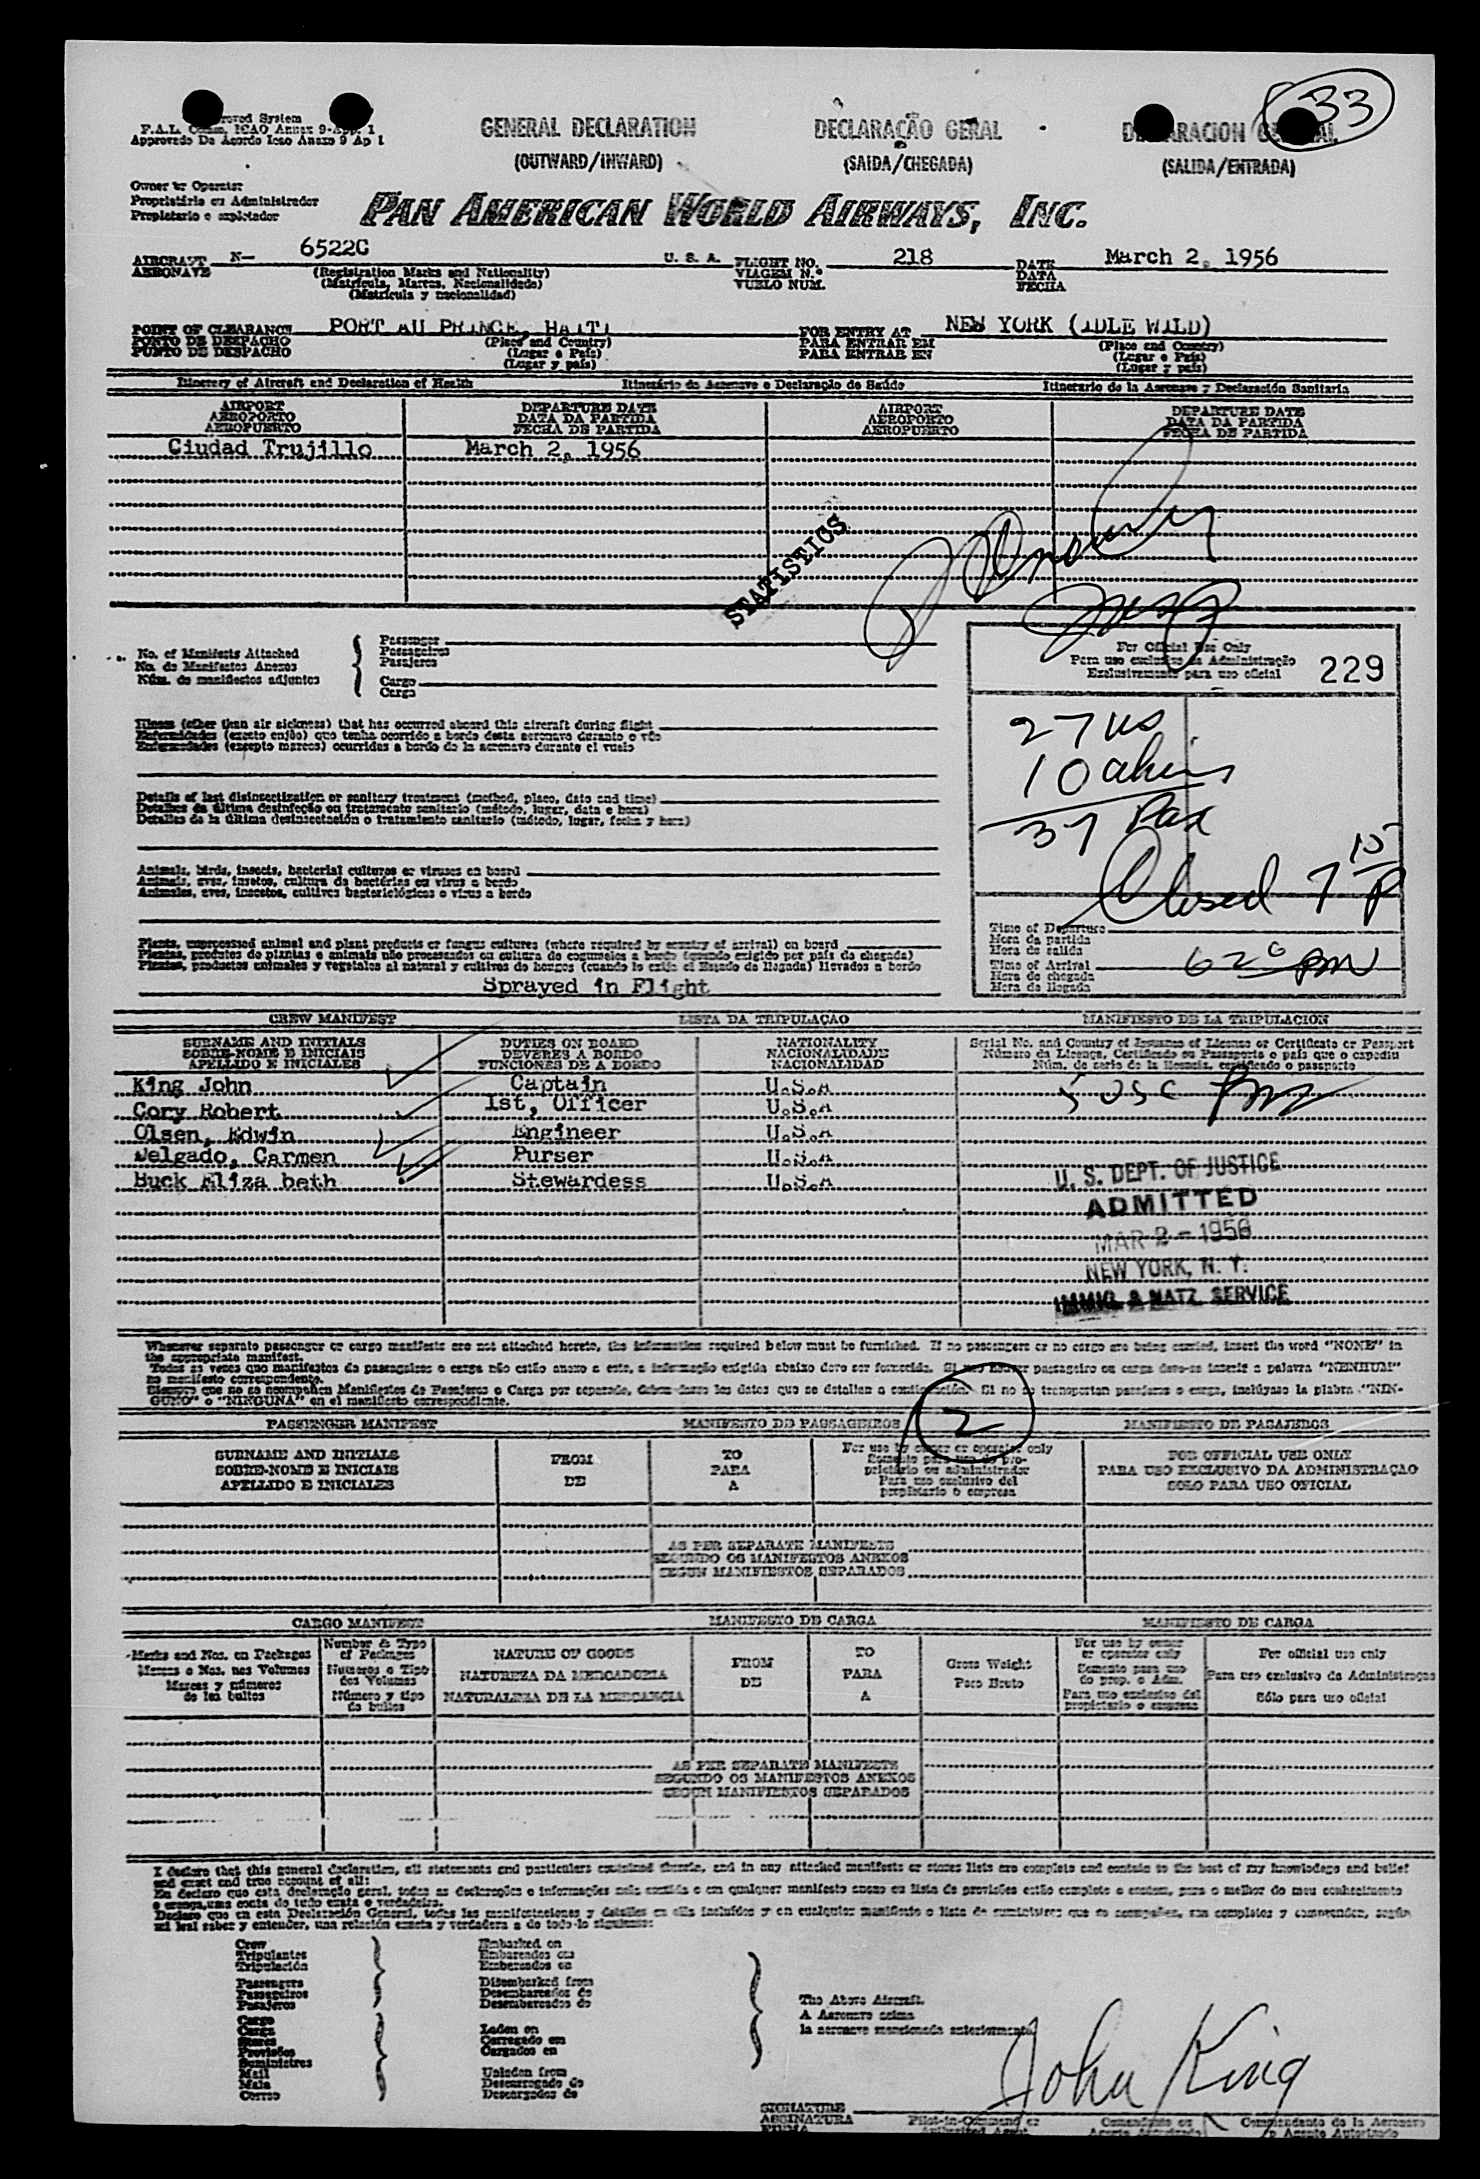 33
roved System
F.A.L. Comm. ICAO Annex 9-App. 1
Approvado De Acordo Icao Anexo 9 Ap 1
GENERAL DECLARATION
(OUTWARD/INWARD)
DECLARAÇÃO GERAL
(SAIDA/CHEGADA)
ARACION
(SALIDA/ENTRADA)
Owner or Operator
Proprietário ou Administrador
Propietario o explotador
PAN AMERICAN WORLD AIRWAYS, INC.
AIRCRAFT N— 6522C U. S. A. FLIGHT NO. 218 DATE March 2, 1956
AERONAVE (Registration Marks and Nationality) VIAGEM N.º DATA
(Matrícula, Marcas, Nacionalidade) VUELO NUM. FECHA
(Matrícula y nacionalidad)
POINT OF CLEARANCE PORT AU PRINCE, HAITI FOR ENTRY AT NEW YORK (IDLE WILD)
PONTO DE DESPACHO (Place and Country) PARA ENTRAR EM (Place and Country)
PUNTO DE DESPACHO (Lugar e País) PARA ENTRAR EN (Lugar e País)
(Lugar y país) (Lugar y país)
Itinerary of Aircraft and Declaration of Health Itinerário da Aeronave e Declaração de Saúde Itinerario de la Aeronave y Declaración Sanitaria
AIRPORT DEPARTURE DATE AIRPORT DEPARTURE DATE
AEROPORTO DATA DA PARTIDA AEROPORTO DATA DA PARTIDA
AEROPUERTO FECHA DE PARTIDA AEROPUERTO FECHA DE PARTIDA
Ciudad Trujillo March 2, 1956
STATISTICS
No. of Manifests Attached
No. de Manifestos Anexos
Núm. de manifiestos adjuntos
Passenger
Passageiros
Pasajeros
Cargo
Carga
For Official Use Only
Para uso exclusivo da Administração
Exclusivamente para uso oficial
229
27 US
10 aliens
37 Pax
Closed 7 15 P
Illness (other than air sickness) that has occurred aboard this aircraft during flight
Enfermidades (exceto enjôo) que tenha ocorrido a bordo desta aeronave durante o vôo
Enfermedades (excepto mareos) ocurridas a bordo de la aeronave durante el vuelo
Details of last disinsectization or sanitary treatment (method, place, date and time)
Detalhes da última desinfeção ou tratamento sanitario (método, lugar, data e hora)
Detalles de la última desinsectación o tratamiento sanitario (método, lugar, fecha y hora)
Animals, birds, insects, bacterial cultures or viruses on board
Animais, aves, insetos, cultura de bactérias ou virus a bordo
Animales, aves, insectos, cultivos bacteriológicos o virus a bordo
Plants, unprocessed animal and plant products or fungus cultures (where required by country of arrival) on board
Plantas, produtos de plantas e animais não processados ou cultura de cogumelos a bordo (quando exigido por país da chegada)
Plantas, productos animales y vegetales al natural y cultivos de hongos (cuando lo exija el Estado de llegada) llevados a bordo
Sprayed in Flight
Time of Departure
Hora da partida
Hora de salida
Time of Arrival 620 PM
Hora de chegada
Hora de llegada
CREW MANIFEST LISTA DA TRIPULAÇÃO MANIFIESTO DE LA TRIPULACION
SURNAME AND INITIALS DUTIES ON BOARD NATIONALITY Serial No. and Country of Issuance of License or Certificate or Passport
SOBRE-NOME E INICIAIS DEVERES A BORDO NACIONALIDADE Número da Licença, Certificado ou Passaporte e país que o expediu
APELLIDO E INICIALES FUNCIONES DE A BORDO NACIONALIDAD Núm. de serie de la licencia, certificado o pasaporte
King John Captain U.S.A
Cory Robert 1st, Officer U.S.A
Olsen, Edwin Engineer U.S.A
Delgado, Carmen Purser U.S.A
Buck Eliza beth Stewardess U.S.A
5 USC
U. S. DEPT. OF JUSTICE
ADMITTED
MAR 2 - 1956
NEW YORK, N. Y.
IMMIG. & NATZ. SERVICE
Whenever separate passenger or cargo manifests are not attached hereto, the information required below must be furnished. If no passengers or no cargo are being carried, insert the word "NONE" in
the appropriate manifest.
Todas as vezes que manifestos de passageiros e carga não estão anexo a este, a informação exigida abaixo deve ser fornecida. Si não houver passageiro ou carga deve-se inserir a palavra "NENHUM"
no manifesto correspondente.
Siempre que no se acompañen Manifiestos de Pasajeros o Carga por separado, deben darse los datos que se detallan a continuación. Si no se transportan pasajeros o carga, inclúyase la plabra "NIN-
GUNO" o "NINGUNA" en el manifiesto correspondiente.
2
PASSENGER MANIFEST MANIFESTO DE PASSAGEIROS MANIFIESTO DE PASAJEROS
SURNAME AND INITIALS FROM TO For use by owner or operator only FOR OFFICIAL USE ONLY
SOBRE-NOME E INICIAIS DE PARA Somente para uso do pro- PARA USO EXCLUSIVO DA ADMINISTRAÇAO
APELLIDO E INICIALES A prietário ou administrador SOLO PARA USO OFICIAL
Para uso exclusivo del
propietario o empresa
AS PER SEPARATE MANIFESTS
SEGUNDO OS MANIFESTOS ANEXOS
SEGUN MANIFIESTOS SEPARADOS
CARGO MANIFEST MANIFESTO DE CARGA MANIFIESTO DE CARGA
Marks and Nos. on Packages
Marcas e Nos. nos Volumes
Marcas y números
de los bultos
Number & Type
of Packages
Numeros e Tipo
dos Volumes
Número y tipo
de bultos
NATURE OF GOODS
NATUREZA DA MERCADORIA
NATURALEZA DE LA MERCANCIA
FROM
DE
TO
PARA
A
Gross Weight
Peso Bruto
For use by owner
or operator only
Somente para uso
do prop. o Adm.
Para uso exclusivo del
propietario o empresa
For official use only
Para uso exclusivo da Administraçao
Sólo para uso oficial
AS PER SEPARATE MANIFESTS
SEGUNDO OS MANIFESTOS ANEXOS
SEGUN MANIFIESTOS SEPARADOS
I declare that this general declaration, all statements and particulars contained therein, and in any attached manifests or stores lists are complete and contain to the best of my knowledge and belief
and exact and true account of all:
Eu declaro que esta declaração geral, todas as declarações e informações nela contida e em qualquer manifesto anexo ou lista de provisões estão completo e contem, para o melhor do meu conhecimento
e crença, uma conta de tudo exata e verdadeira.
Declaro que en esta Declaración General, todas las manifestaciones y detalles en ella incluídos y en cualquier manifiesto o lista de suministros que se acompañen, son completos y comprenden, según
mi leal saber y entender, una relación exacta y verdadera a de todo lo siguiente:
Crew
Tripulantes
Tripulación
Passengers
Passageiros
Pasajeros
Cargo
Carga
Stores
Provisões
Suministros
Mail
Mala
Correo
Embarked on
Embarcados em
Embarcados en
Disembarked from
Desembarcados de
Desembarcados de
Laden on
Carregado em
Cargados en
Unladen from
Descarregado de
Descargados de
The Above Aircraft.
A Aeronave acima
la aeronave mencionada anteriormente
John King
SIGNATURE
ASSINATURA
FIRMA
Pilot-in-Command or
Authorized Agent
Comandante ou
Agente Autorizado
Comandante de la Aeronave
o Agente Autorizado